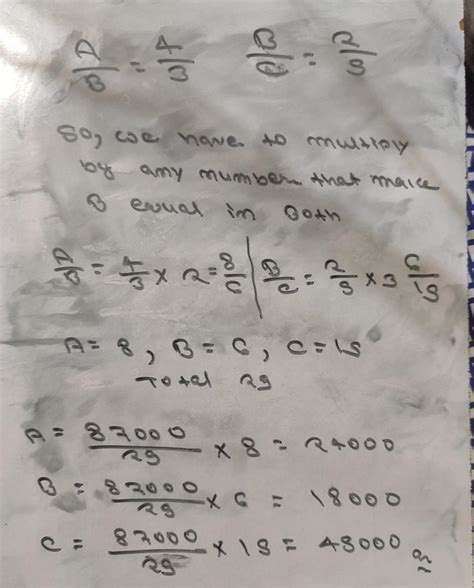 A/B = 4/3 B/C = 2/5
So, we have to multiply
by any number that make
B equal in Both
A/B = 4/3 × 2 = 8/6 | B/C = 2/5 × 3 6/15
A = 8, B = 6, C = 15
Total 29
A = 87000/29 × 8 = 24000
B = 87000/29 × 6 = 18000
C = 87000/29 × 15 = 45000